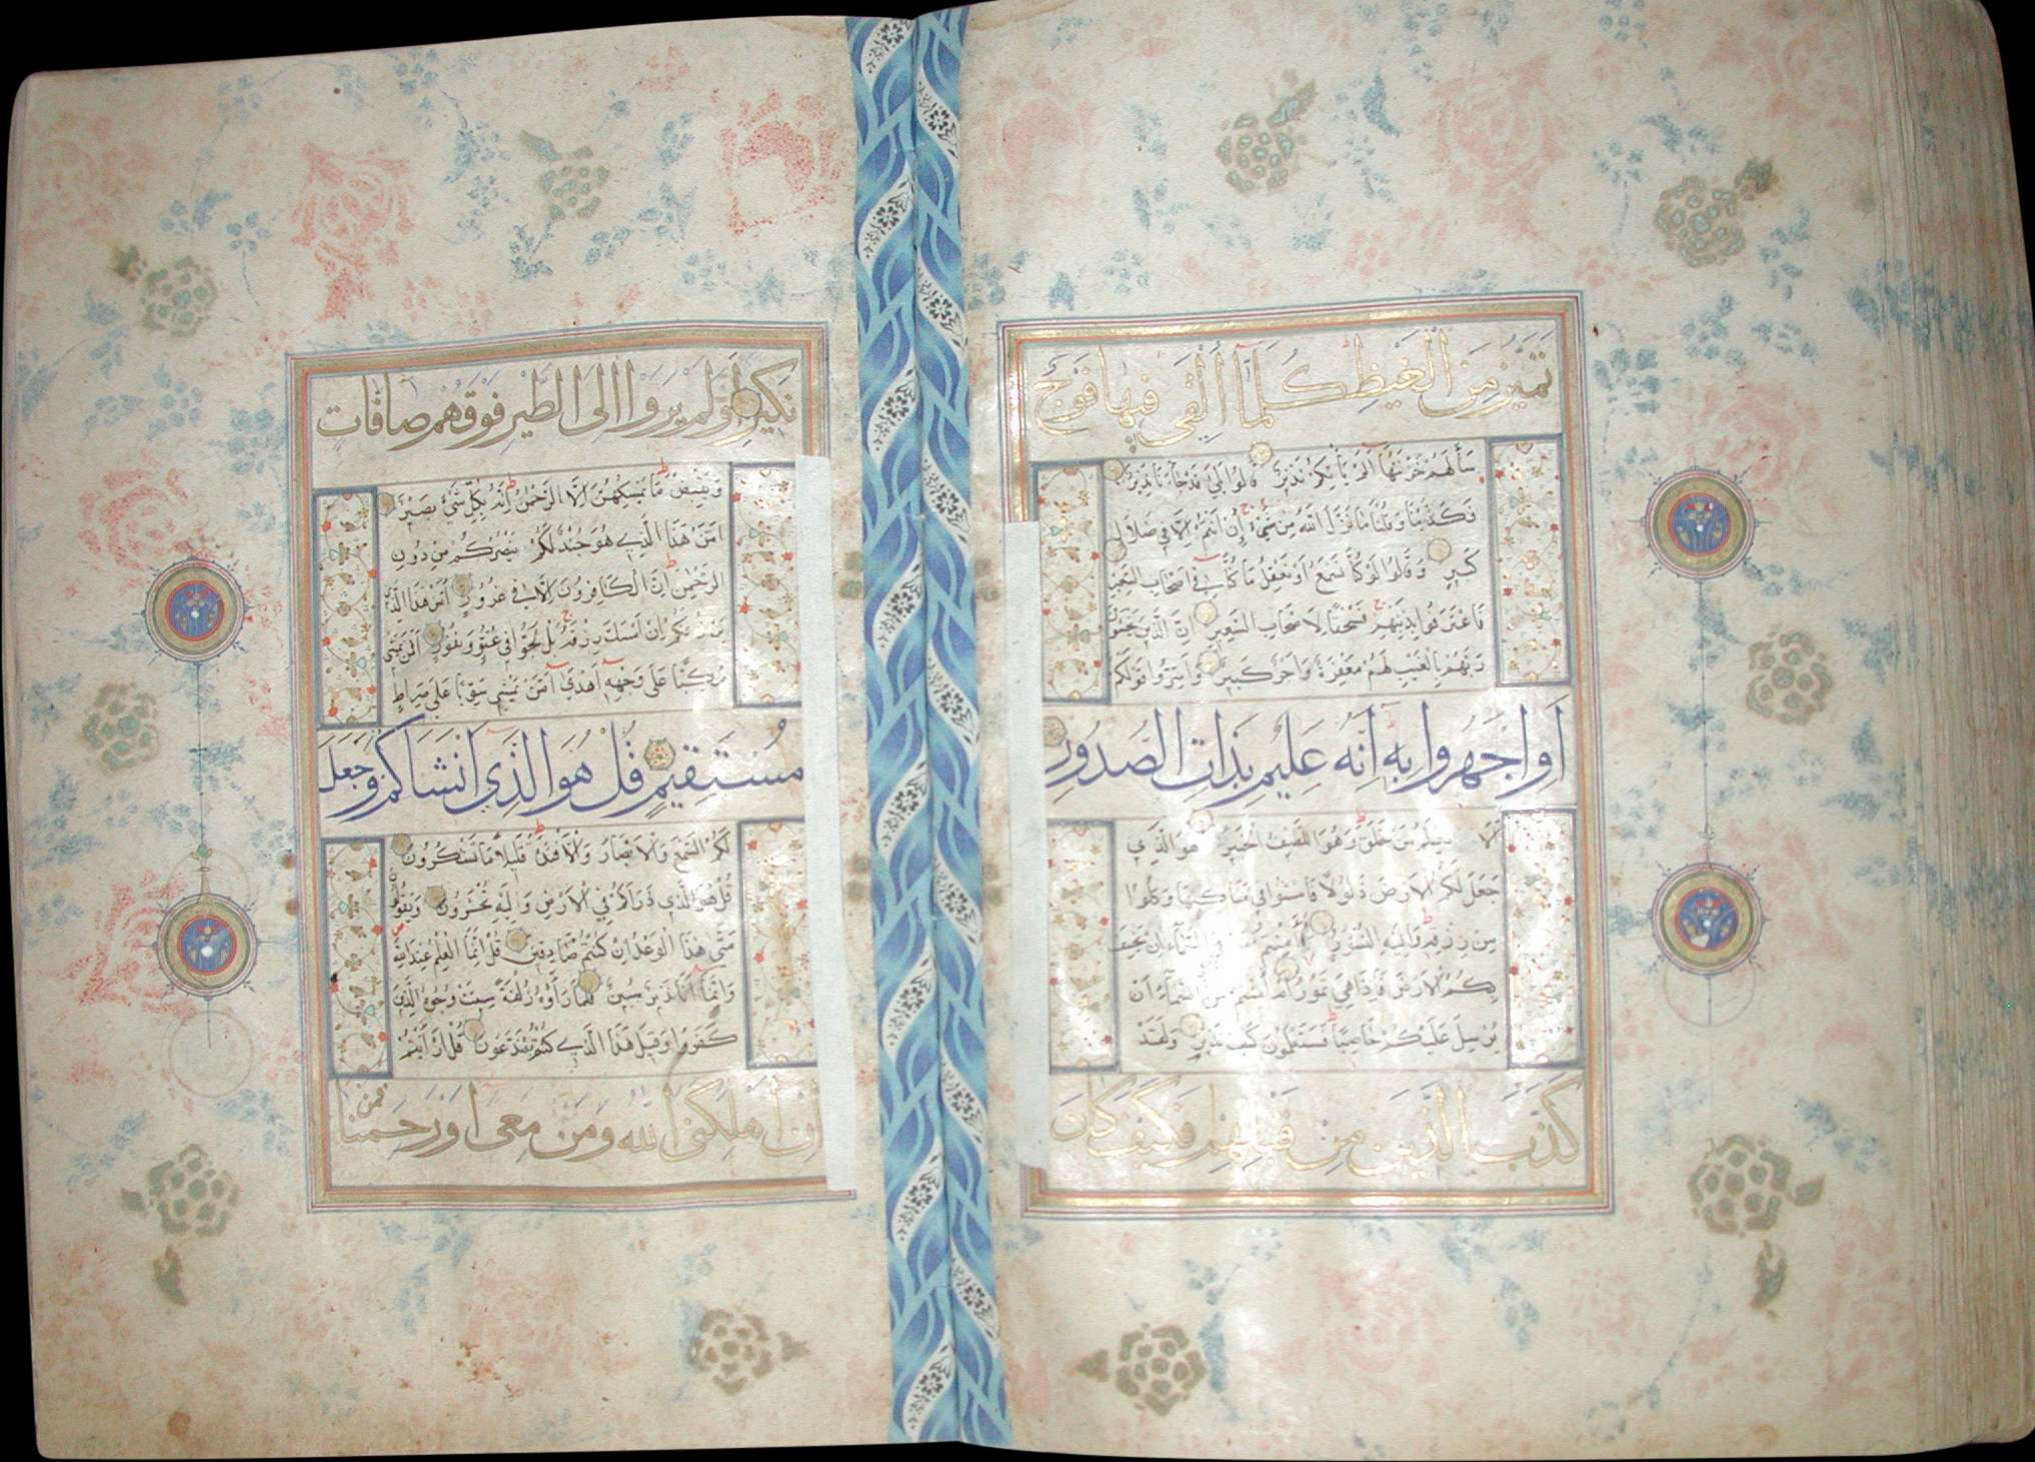 تَمَيَّزُ مِنَ الْغَيْظِ كُلَّمَا أُلْقِيَ فِيهَا فَوْجٌ
سَأَلَهُمْ خَزَنَتُهَا أَلَمْ يَأْتِكُمْ نَذِيرٌ قَالُوا بَلَى قَدْ جَاءَنَا نَذِيرٌ
فَكَذَّبْنَا وَقُلْنَا مَا نَزَّلَ اللَّهُ مِنْ شَيْءٍ إِنْ أَنْتُمْ إِلَّا فِي ضَلَالٍ
كَبِيرٍ وَقَالُوا لَوْ كُنَّا نَسْمَعُ أَوْ نَعْقِلُ مَا كُنَّا فِي أَصْحَابِ السَّعِيرِ
فَاعْتَرَفُوا بِذَنْبِهِمْ فَسُحْقًا لِأَصْحَابِ السَّعِيرِ إِنَّ الَّذِينَ يَخْشَوْنَ
رَبَّهُمْ بِالْغَيْبِ لَهُمْ مَغْفِرَةٌ وَأَجْرٌ كَبِيرٌ وَأَسِرُّوا قَوْلَكُمْ
أَوِ اجْهَرُوا بِهِ إِنَّهُ عَلِيمٌ بِذَاتِ الصُّدُورِ
أَلَا يَعْلَمُ مَنْ خَلَقَ وَهُوَ اللَّطِيفُ الْخَبِيرُ هُوَ الَّذِي
جَعَلَ لَكُمُ الْأَرْضَ ذَلُولًا فَامْشُوا فِي مَنَاكِبِهَا وَكُلُوا
مِنْ رِزْقِهِ وَإِلَيْهِ النُّشُورُ أَأَمِنْتُمْ مَنْ فِي السَّمَاءِ أَنْ يَخْسِفَ
بِكُمُ الْأَرْضَ فَإِذَا هِيَ تَمُورُ أَمْ أَمِنْتُمْ مَنْ فِي السَّمَاءِ أَنْ
يُرْسِلَ عَلَيْكُمْ حَاصِبًا فَسَتَعْلَمُونَ كَيْفَ نَذِيرِ وَلَقَدْ
كَذَّبَ الَّذِينَ مِنْ قَبْلِهِمْ فَكَيْفَ كَانَ
نَكِيرِ أَوَلَمْ يَرَوْا إِلَى الطَّيْرِ فَوْقَهُمْ صَافَّاتٍ
وَيَقْبِضْنَ مَا يُمْسِكُهُنَّ إِلَّا الرَّحْمَنُ إِنَّهُ بِكُلِّ شَيْءٍ بَصِيرٌ
أَمَّنْ هَذَا الَّذِي هُوَ جُنْدٌ لَكُمْ يَنْصُرُكُمْ مِنْ دُونِ
الرَّحْمَنِ إِنِ الْكَافِرُونَ إِلَّا فِي غُرُورٍ أَمَّنْ هَذَا الَّذِي
يَرْزُقُكُمْ إِنْ أَمْسَكَ رِزْقَهُ بَلْ لَجُّوا فِي عُتُوٍّ وَنُفُورٍ أَفَمَنْ يَمْشِي
مُكِبًّا عَلَى وَجْهِهِ أَهْدَى أَمَّنْ يَمْشِي سَوِيًّا عَلَى صِرَاطٍ
مُسْتَقِيمٍ قُلْ هُوَ الَّذِي أَنْشَأَكُمْ وَجَعَلَ
لَكُمُ السَّمْعَ وَالْأَبْصَارَ وَالْأَفْئِدَةَ قَلِيلًا مَا تَشْكُرُونَ
قُلْ هُوَ الَّذِي ذَرَأَكُمْ فِي الْأَرْضِ وَإِلَيْهِ تُحْشَرُونَ وَيَقُولُونَ
مَتَى هَذَا الْوَعْدُ إِنْ كُنْتُمْ صَادِقِينَ قُلْ إِنَّمَا الْعِلْمُ عِنْدَ اللَّهِ
وَإِنَّمَا أَنَا نَذِيرٌ مُبِينٌ فَلَمَّا رَأَوْهُ زُلْفَةً سِيئَتْ وُجُوهُ الَّذِينَ
كَفَرُوا وَقِيلَ هَذَا الَّذِي كُنْتُمْ بِهِ تَدَّعُونَ قُلْ أَرَأَيْتُمْ
إِنْ أَهْلَكَنِيَ اللَّهُ وَمَنْ مَعِيَ أَوْ رَحِمَنَا فَمَنْ